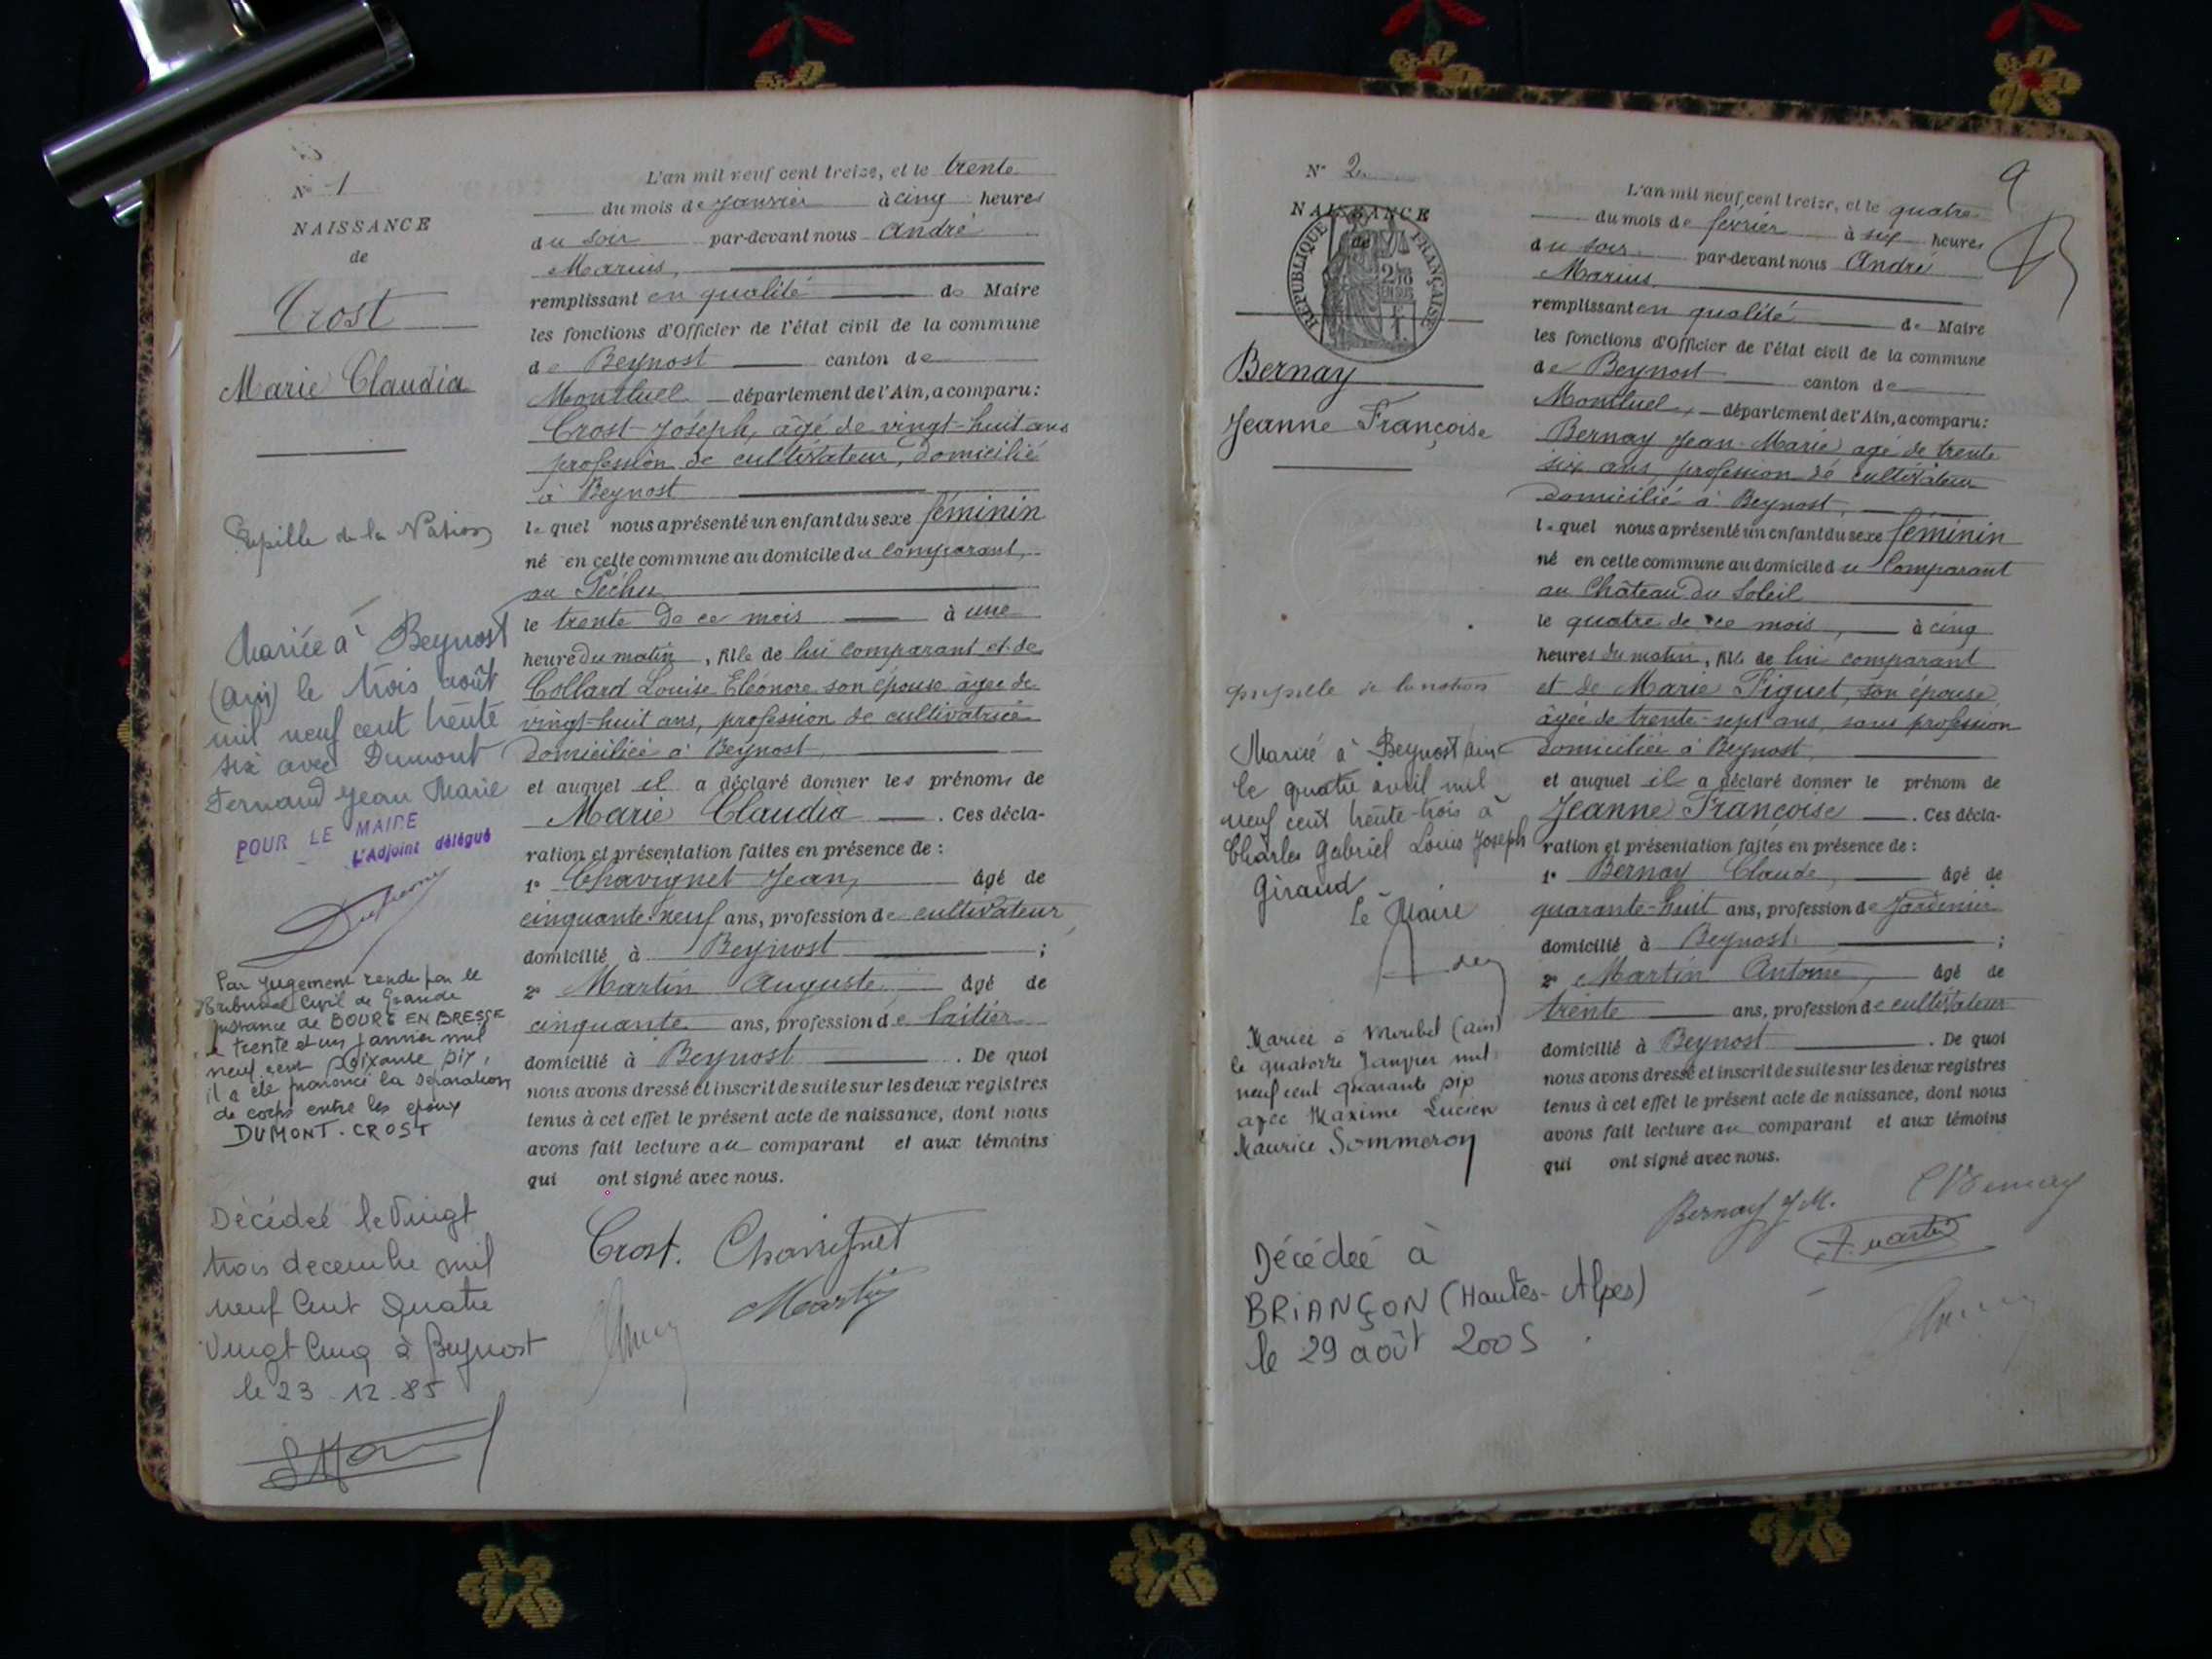 N° 1
NAISSANCE
de
Crost
Marie Claudia
Pupille de la Nation
Mariée à Beynost
(Ain) le trois août
mil neuf cent trente
six avec Dumont
Fernand Jean Marie
POUR LE MAIRE
L'Adjoint délégué
Par Jugement rendu par le
Tribunal Civil de Grande
Instance de BOURG EN BRESSE
le trente et un janvier mil
neuf cent soixante six,
il a été prononcé la séparation
de corps entre les époux
DUMONT - CROST
Décédée le Vingt
trois decembre mil
neuf Cent Quatre
Vingt Cinq à Beynost
le 23 - 12 - 85
L'an mil neuf cent treize, et le trente
du mois de Janvier à cinq heures
du soir par-devant nous André
Marius,
remplissant en qualité de Maire
les fonctions d'Officier de l'état civil de la commune
de Beynost canton de
Montluel département de l'Ain, a comparu :
Crost Joseph, âgé de vingt-huit ans
profession de cultivateur, domicilié
à Beynost
lequel nous a présenté un enfant du sexe féminin
né en cette commune au domicile du comparant,
au Péchu
le trente de ce mois à une
heure du matin, fille de lui comparant et de
Collard Louise Eléonore son épouse âgée de
vingt-huit ans, profession de cultivatrice
domiciliée à Beynost,
et auquel il a déclaré donner les prénoms de
Marie Claudia . Ces décla-
ration et présentation faites en présence de :
1° Chavignet Jean, âgé de
cinquante-neuf ans, profession de cultivateur
domicilié à Beynost ;
2° Martin Auguste, âgé de
cinquante ans, profession de laitier
domicilié à Beynost . De quoi
nous avons dressé et inscrit de suite sur les deux registres
tenus à cet effet le présent acte de naissance, dont nous
avons fait lecture au comparant et aux témoins
qui ont signé avec nous.
Crost. Chavignet
Martin
N° 2
NAISSANCE
de
RÉPUBLIQUE FRANÇAISE
Bernay
Jeanne Françoise
pupille de la nation
Mariée à Beynost Ain
le quatre avril mil
neuf cent trente-trois à
Charles Gabriel Louis Joseph
Giraud
Le Maire
Mariée à Miribel (Ain)
le quatorze Janvier mil
neuf cent quarante six
avec Maxime Lucien
Maurice Sommeron
Décédée à
BRIANÇON (Hautes-Alpes)
le 29 août 2005
9
L'an mil neuf cent treize, et le quatre
du mois de février à six heures
du soir par-devant nous André
Marius
remplissant en qualité de Maire
les fonctions d'Officier de l'état civil de la commune
de Beynost canton de
Montluel, département de l'Ain, a comparu :
Bernay Jean-Marie âgé de trente
six ans, profession de cultivateur
domicilié à Beynost,
lequel nous a présenté un enfant du sexe féminin
né en cette commune au domicile du Comparant
au Château du Soleil
le quatre de ce mois, à cinq
heures du matin, fille de lui comparant
et de Marie Piguet, son épouse
âgée de trente-sept ans, sans profession
domiciliée à Beynost,
et auquel il a déclaré donner le prénom de
Jeanne Françoise . Ces décla-
ration et présentation faites en présence de :
1° Bernay Claude, âgé de
quarante-huit ans, profession de Jardinier
domicilié à Beynost ;
2° Martin Antoine, âgé de
trente ans, profession de cultivateur
domicilié à Beynost . De quoi
nous avons dressé et inscrit de suite sur les deux registres
tenus à cet effet le présent acte de naissance, dont nous
avons fait lecture au comparant et aux témoins
qui ont signé avec nous.
Bernay J M. C Bernay
A. Martin